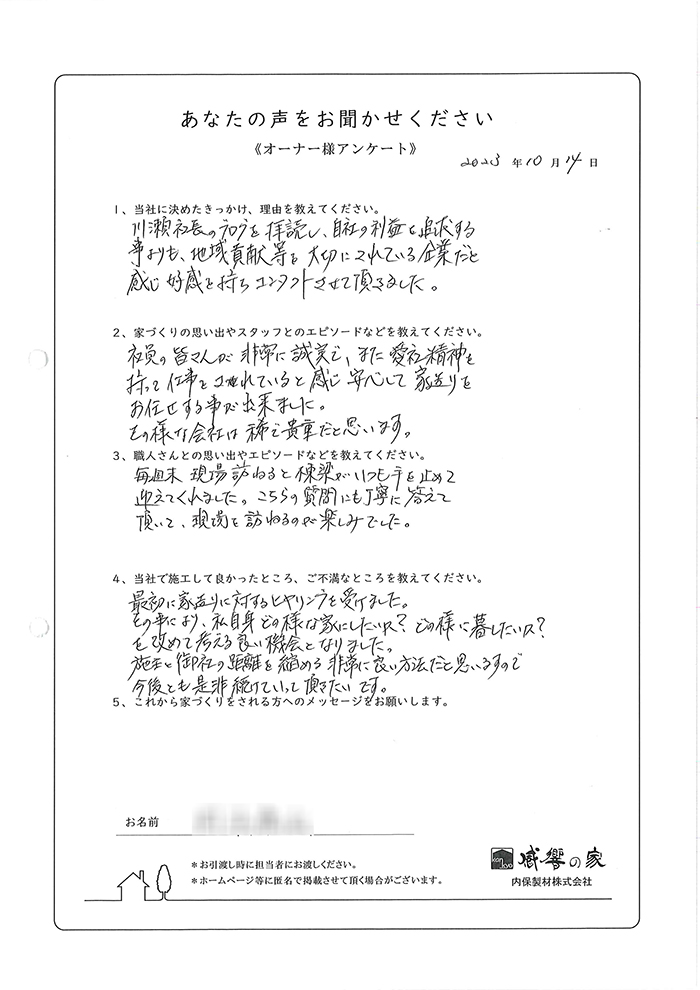 あなたの声をお聞かせください
《オーナー様アンケート》
2023 年 10 月 14 日
1、当社に決めたきっかけ、理由を教えてください。
川瀬社長のブログを拝読し、自社の利益を追求する
事よりも、地域貢献等を大切にされている企業だと
感じ好感を持ちコンタクトさせて頂きました。
2、家づくりの思い出やスタッフとのエピソードなどを教えてください。
社員の皆さんが非常に誠実で、また愛社精神を
持って仕事をされていると感じ安心して家造りを
お任せする事が出来ました。
その様な会社は稀で貴重だと思います。
3、職人さんとの思い出やエピソードなどを教えてください。
毎週末現場訪ねると棟梁がいつも手を止めて
迎えてくれました。こちらの質問にも丁寧に答えて
頂いて、現場を訪ねるのが楽しみでした。
4、当社で施工して良かったところ、ご不満なところを教えてください。
最初に家造りに対するヒヤリングを受けました。
その事により、私自身どの様な家にしたいか?どの様に暮したいか?
を改めて考える良い機会となりました。
施主と御社の距離を縮める非常に良い方法だと思いますので
今後とも是非続けていって頂きたいです。
5、これから家づくりをされる方へのメッセージをお願いします。
お名前
*お引渡し時に担当者にお渡しください。
*ホームページ等に匿名で掲載させて頂く場合がございます。
kan kyo 感響の家
内保製材株式会社